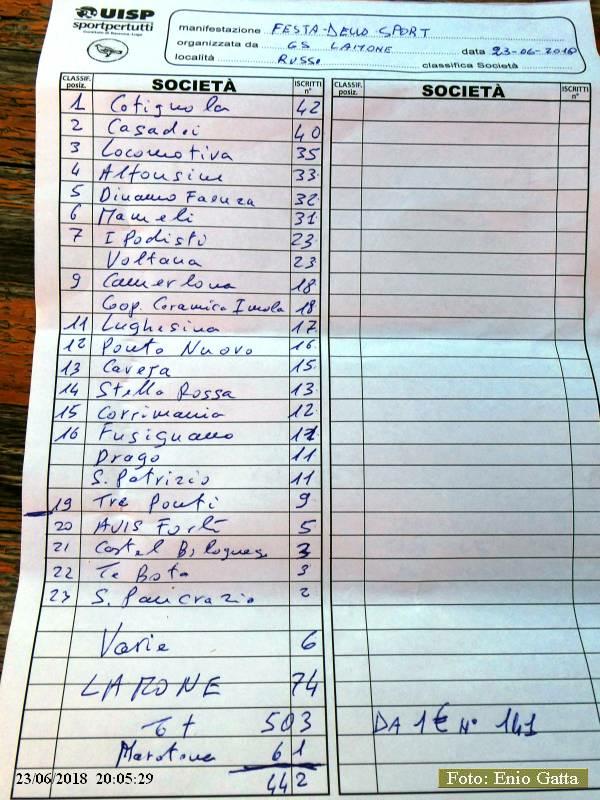 UISP
sportpertutti
manifestazione FESTA DELLO SPORT
organizzata da GS LAMONE data 23-06-2018
località RUSSI classifica Società
CLASSIF. posiz. SOCIETÀ ISCRITTI n° CLASSIF. posiz. SOCIETÀ ISCRITTI n°
1 Cotignola 42
2 Casadei 40
3 Locomotiva 35
4 Alfonsine 33
5 Dinamo Faenza 32
6 Mameli 31
7 I Podisti 23
Voltana 23
9 Camerlona 18
Coop. Ceramica Imola 18
11 Lughesina 17
12 Ponte Nuovo 16
13 Caveja 15
14 Stella Rossa 13
15 Corrimania 12
16 Fusignano 11
Drago 11
S. Patrizio 11
19 Tre Ponti 9
20 AVIS Forlì 5
21 Castel Bolognese 3
22 Te Bota 3
23 S. Pancrazio 2
Varie 6
LAMONE 74
Tot 503 DA 1 € N° 141
Maratona 61
442
23/06/2018 20:05:29
Foto: Enio Gatta